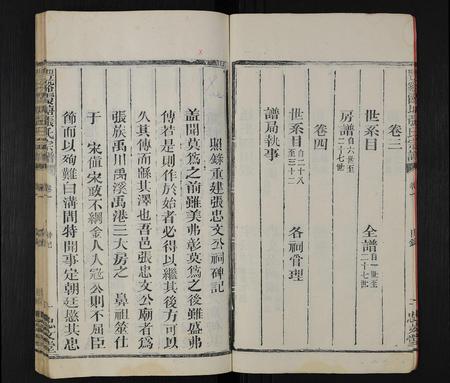 卷三
世系目
全譜自一世至二十七世
房譜自六世至二十七世
卷四
世系目自二十八至三十二
各祠管理
譜局執事
照錄重建張忠文公祠碑記
蓋聞莫爲之前雖美弗彰莫爲之後雖盛弗
傳若是則作於始者必得以繼其後方可以
久其傳而緜其澤也吾邑張忠文公廟者爲
張族禹川禹溪禹港三大房之 鼻祖筮仕
于 宋値宋政不綱金人入寇公則不屈臣
節而以殉難白溝聞特聞事定朝廷愍其忠
張氏宗譜
忠文堂